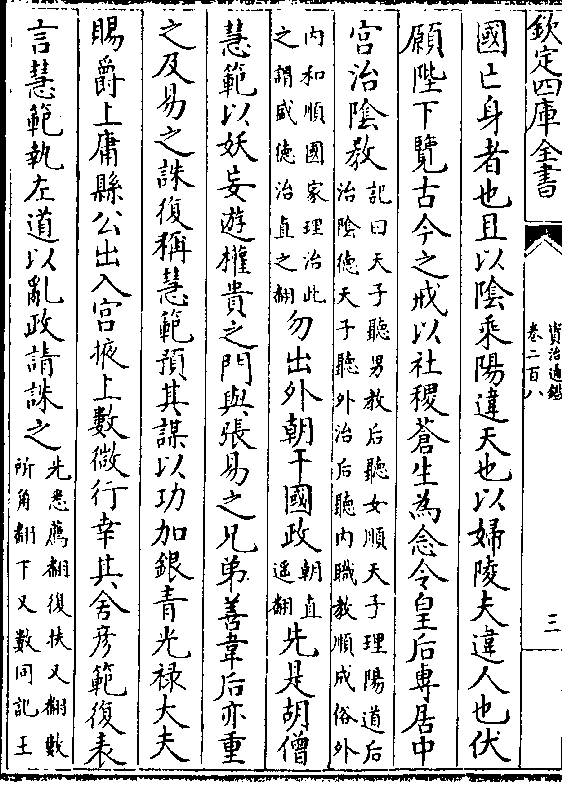 欽定四庫全書
資治通鑑
卷二百八
三
國亡身者也且以陰乘陽違天也以婦陵夫違人也伏
願陛下覽古今之戒以社稷蒼生為念令皇后專居中
宫治陰教記曰天子聽男教后聽女順天子理陽道后
治陰徳天子聽外治后聽内職教順成俗外
内和順國家理治此
之謂盛徳治直之翻勿出外朝干國政朝直
遥翻先是胡僧
慧範以妖妄遊權貴之門與張易之兄弟善韋后亦重
之及易之誅復稱慧範預其謀以功加銀青光禄大夫
賜爵上庸縣公出入宫掖上數微行幸其舍彦範復表
言慧範執左道以亂政請誅之先悉薦翻復扶又翻數
所角翻下又數同記王